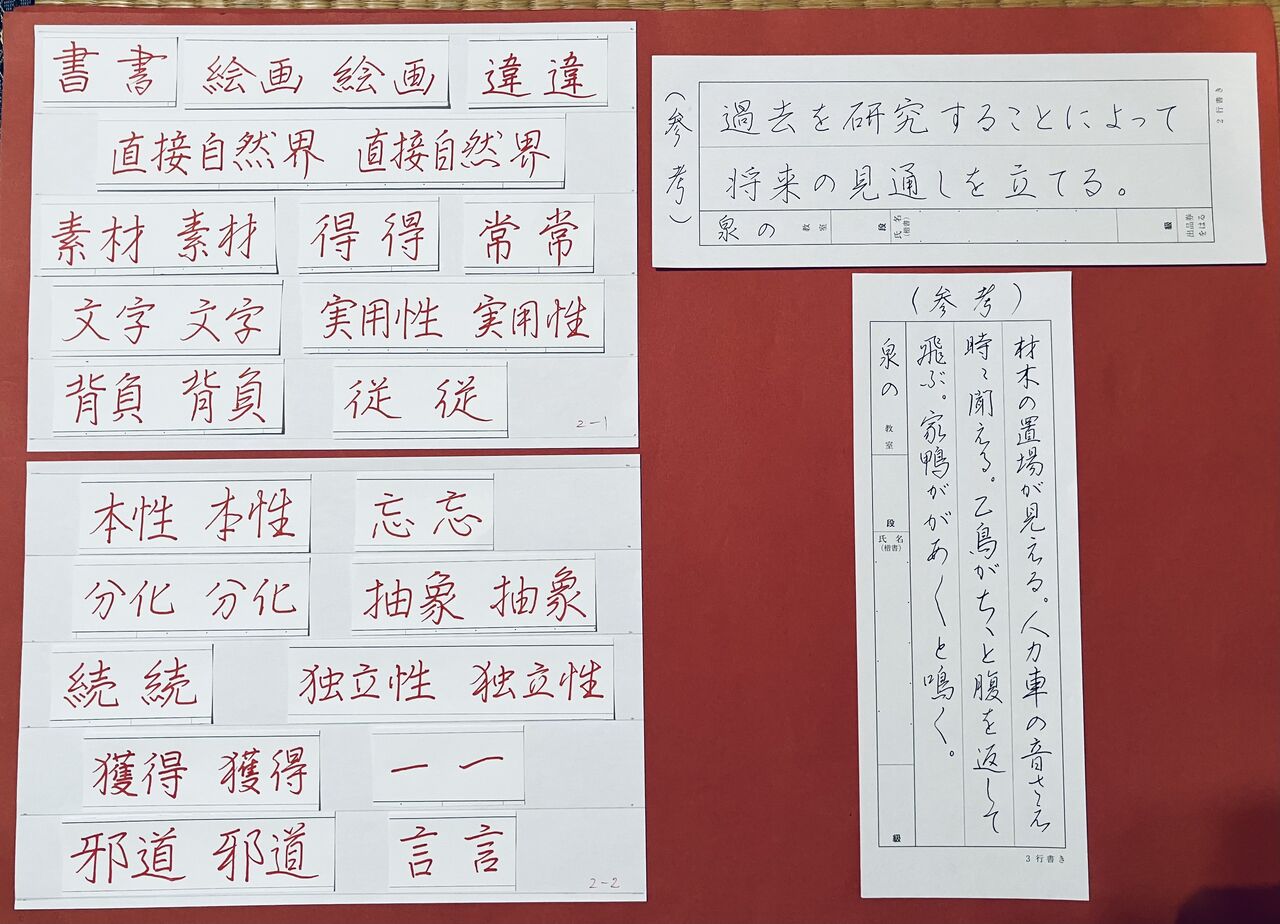 書 書 絵画 絵画 違 違
直接自然界 直接自然界
素材 素材 得 得 常 常
文字 文字 実用性 実用性
背負 背負 従 従
2-1
本性 本性 忘 忘
分化 分化 抽象 抽象
続 続 独立性 独立性
獲得 獲得 一 一
邪道 邪道 言 言
2-2
(参考)
過去を研究することによって
将来の見通しを立てる。
泉の 教室 段 氏名(楷書) 級 出品券をはる
2行書き
(参考)
材木の置場が見える。人力車の音さえ
時〻聞える。乙鳥がちゝと腹を返して
飛ぶ。家鴨ががあ〱と鳴く。
泉の 教室 段 氏名(楷書) 級
3行書き